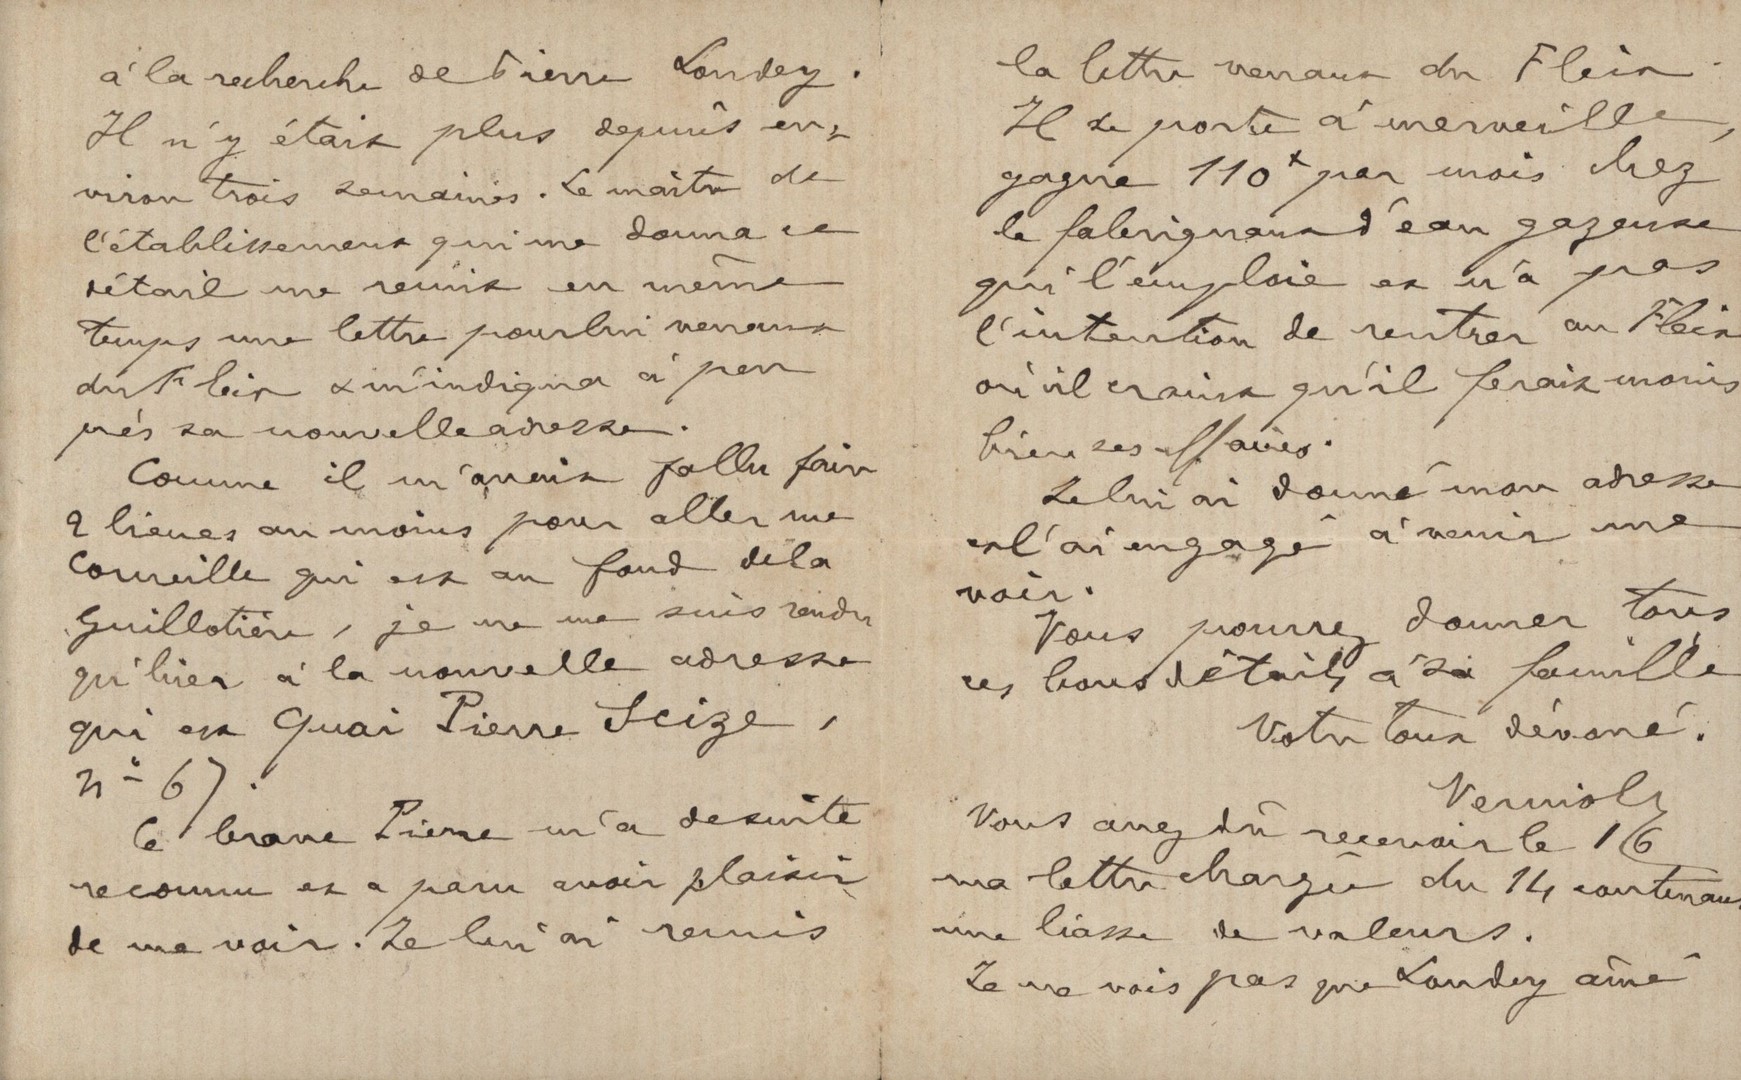 à la recherche de Pierre Londey.
Il n'y était plus depuis en-
viron trois semaines. Le maître de
l'établissement qui me donna ce
détail me remit en même
temps une lettre pour lui venant
du Fleix & m'indiqua à peu
près sa nouvelle adresse.
Comme il m'avait fallu faire
2 lieues au moins pour aller me
Corneille qui est au fond de la
Guillotière, je ne me suis rendu
qu'hier à la nouvelle adresse
qui est Quai Pierre Scize,
n° 67.
Ce brave Pierre m'a de suite
reconnu et a paru avoir plaisir
de me voir. Je lui ai remis
la lettre venant du Fleix.
Il se porte à merveille,
gagne 110 f par mois chez
le fabriquant d'eau gazeuse
qui l'emploie et n'a pas
l'intention de rentrer au Fleix
où il craint qu'il ferait moins
bien ses affaires.
Je lui ai donné mon adresse
et l'ai engagé à venir me
voir.
Vous pourrez donner tous
ces bons détails à sa famille
Votre tout dévoué.
Verniolz
Vous avez dû recevoir le 16
ma lettre chargée du 14 contenant
une liasse de valeurs.
Je ne vois pas que Londey aîné